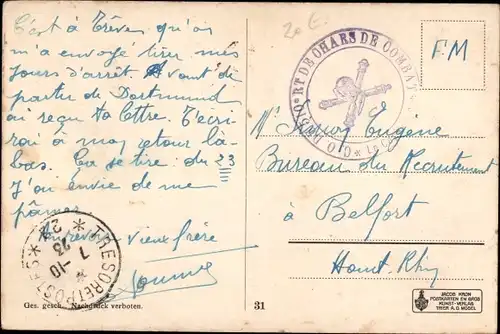 C'est à Trêves qu'on
m'a envoyé tirer mes
jours d'arrêt. Avant de
partir de Dortmund
ai reçu ta lettre. T'écri-
rai à mon retour là-
bas. Ça se tire. du 23
J'ai envie de me
pâmer
Aurevoir vieux frère
20 E.
RT DE CHARS DE COMBAT
FM
Mr Eugène
Bureau du Recrutement
à Belfort
Haut-Rhin
TRESOR ET POSTES
7-10
23
Ges. gesch. Nachdruck verboten.
31
JACOB KRON
POSTKARTEN EN GROS
KUNST-VERLAG
TRIER A.D. MOSEL